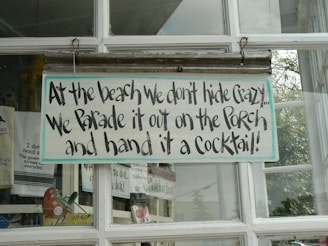 At the beach we don't hide crazy...
We Parade it out on the Porch
and hand it a cocktail!